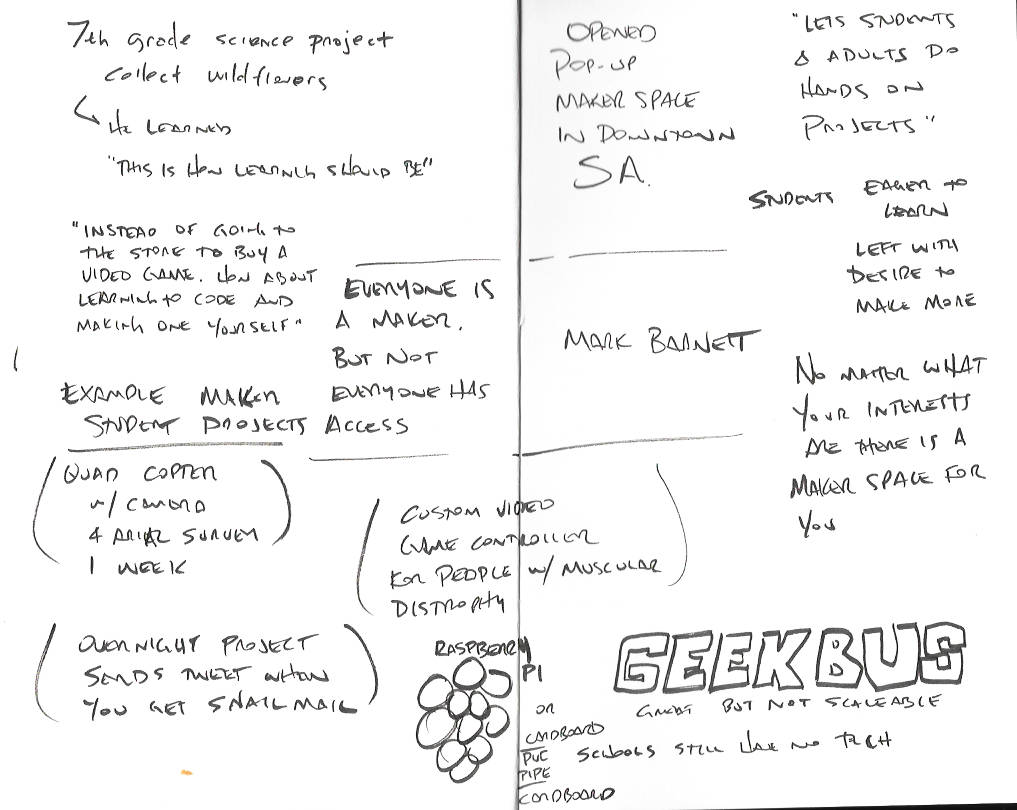 7th grade science project
collect wildflowers
He LEARNED
"THIS IS HOW LEARNING SHOULD BE"
"INSTEAD OF GOING TO
THE STORE TO BUY A
VIDEO GAME. HOW ABOUT
LEARNING TO CODE AND
MAKING ONE YOURSELF"
EVERYONE IS
A MAKER.
BUT NOT
EVERYONE HAS
ACCESS
EXAMPLE MAKER
STUDENT PROJECTS
QUAD COPTER
w/ CAMERA
4 ARIAL SURVEY
1 WEEK
CUSTOM VIDEO
GAME CONTROLLER
FOR PEOPLE w/ MUSCULAR
DISTROPHY
OVERNIGHT PROJECT
SENDS TWEET WHEN
YOU GET SNAIL MAIL
RASPBERRY
PI
OR
CARDBOARD
PVC
PIPE
CARDBOARD
OPENED
POP-UP
MAKER SPACE
IN DOWNTOWN
SA.
"LETS STUDENTS
& ADULTS DO
HANDS ON
PROJECTS"
STUDENTS EAGER TO
LEARN
LEFT WITH
DESIRE TO
MAKE MORE
MARK BARNETT
NO MATTER WHAT
YOUR INTERESTS
ARE THERE IS A
MAKER SPACE FOR
YOU
GEEKBUS
GREAT BUT NOT SCALEABLE
SCHOOLS STILL HAVE NO TECH